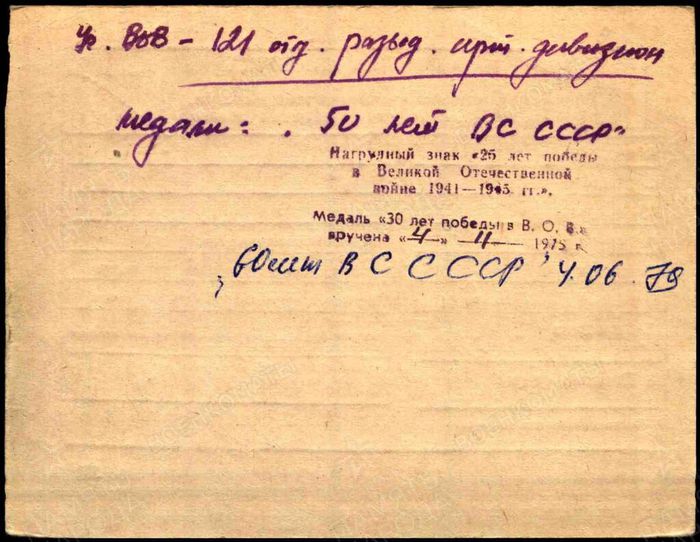 Уч. ВОВ - 121 отд. развед. арт. дивизион
медали: „50 лет ВС СССР"
Нагрудный знак «25 лет победы
в Великой Отечественной
войне 1941—1945 гг.».
Медаль «30 лет победы в В. О. В.»
вручена «4» 11 1975 г.
„60 лет ВС СССР" 4.06.79